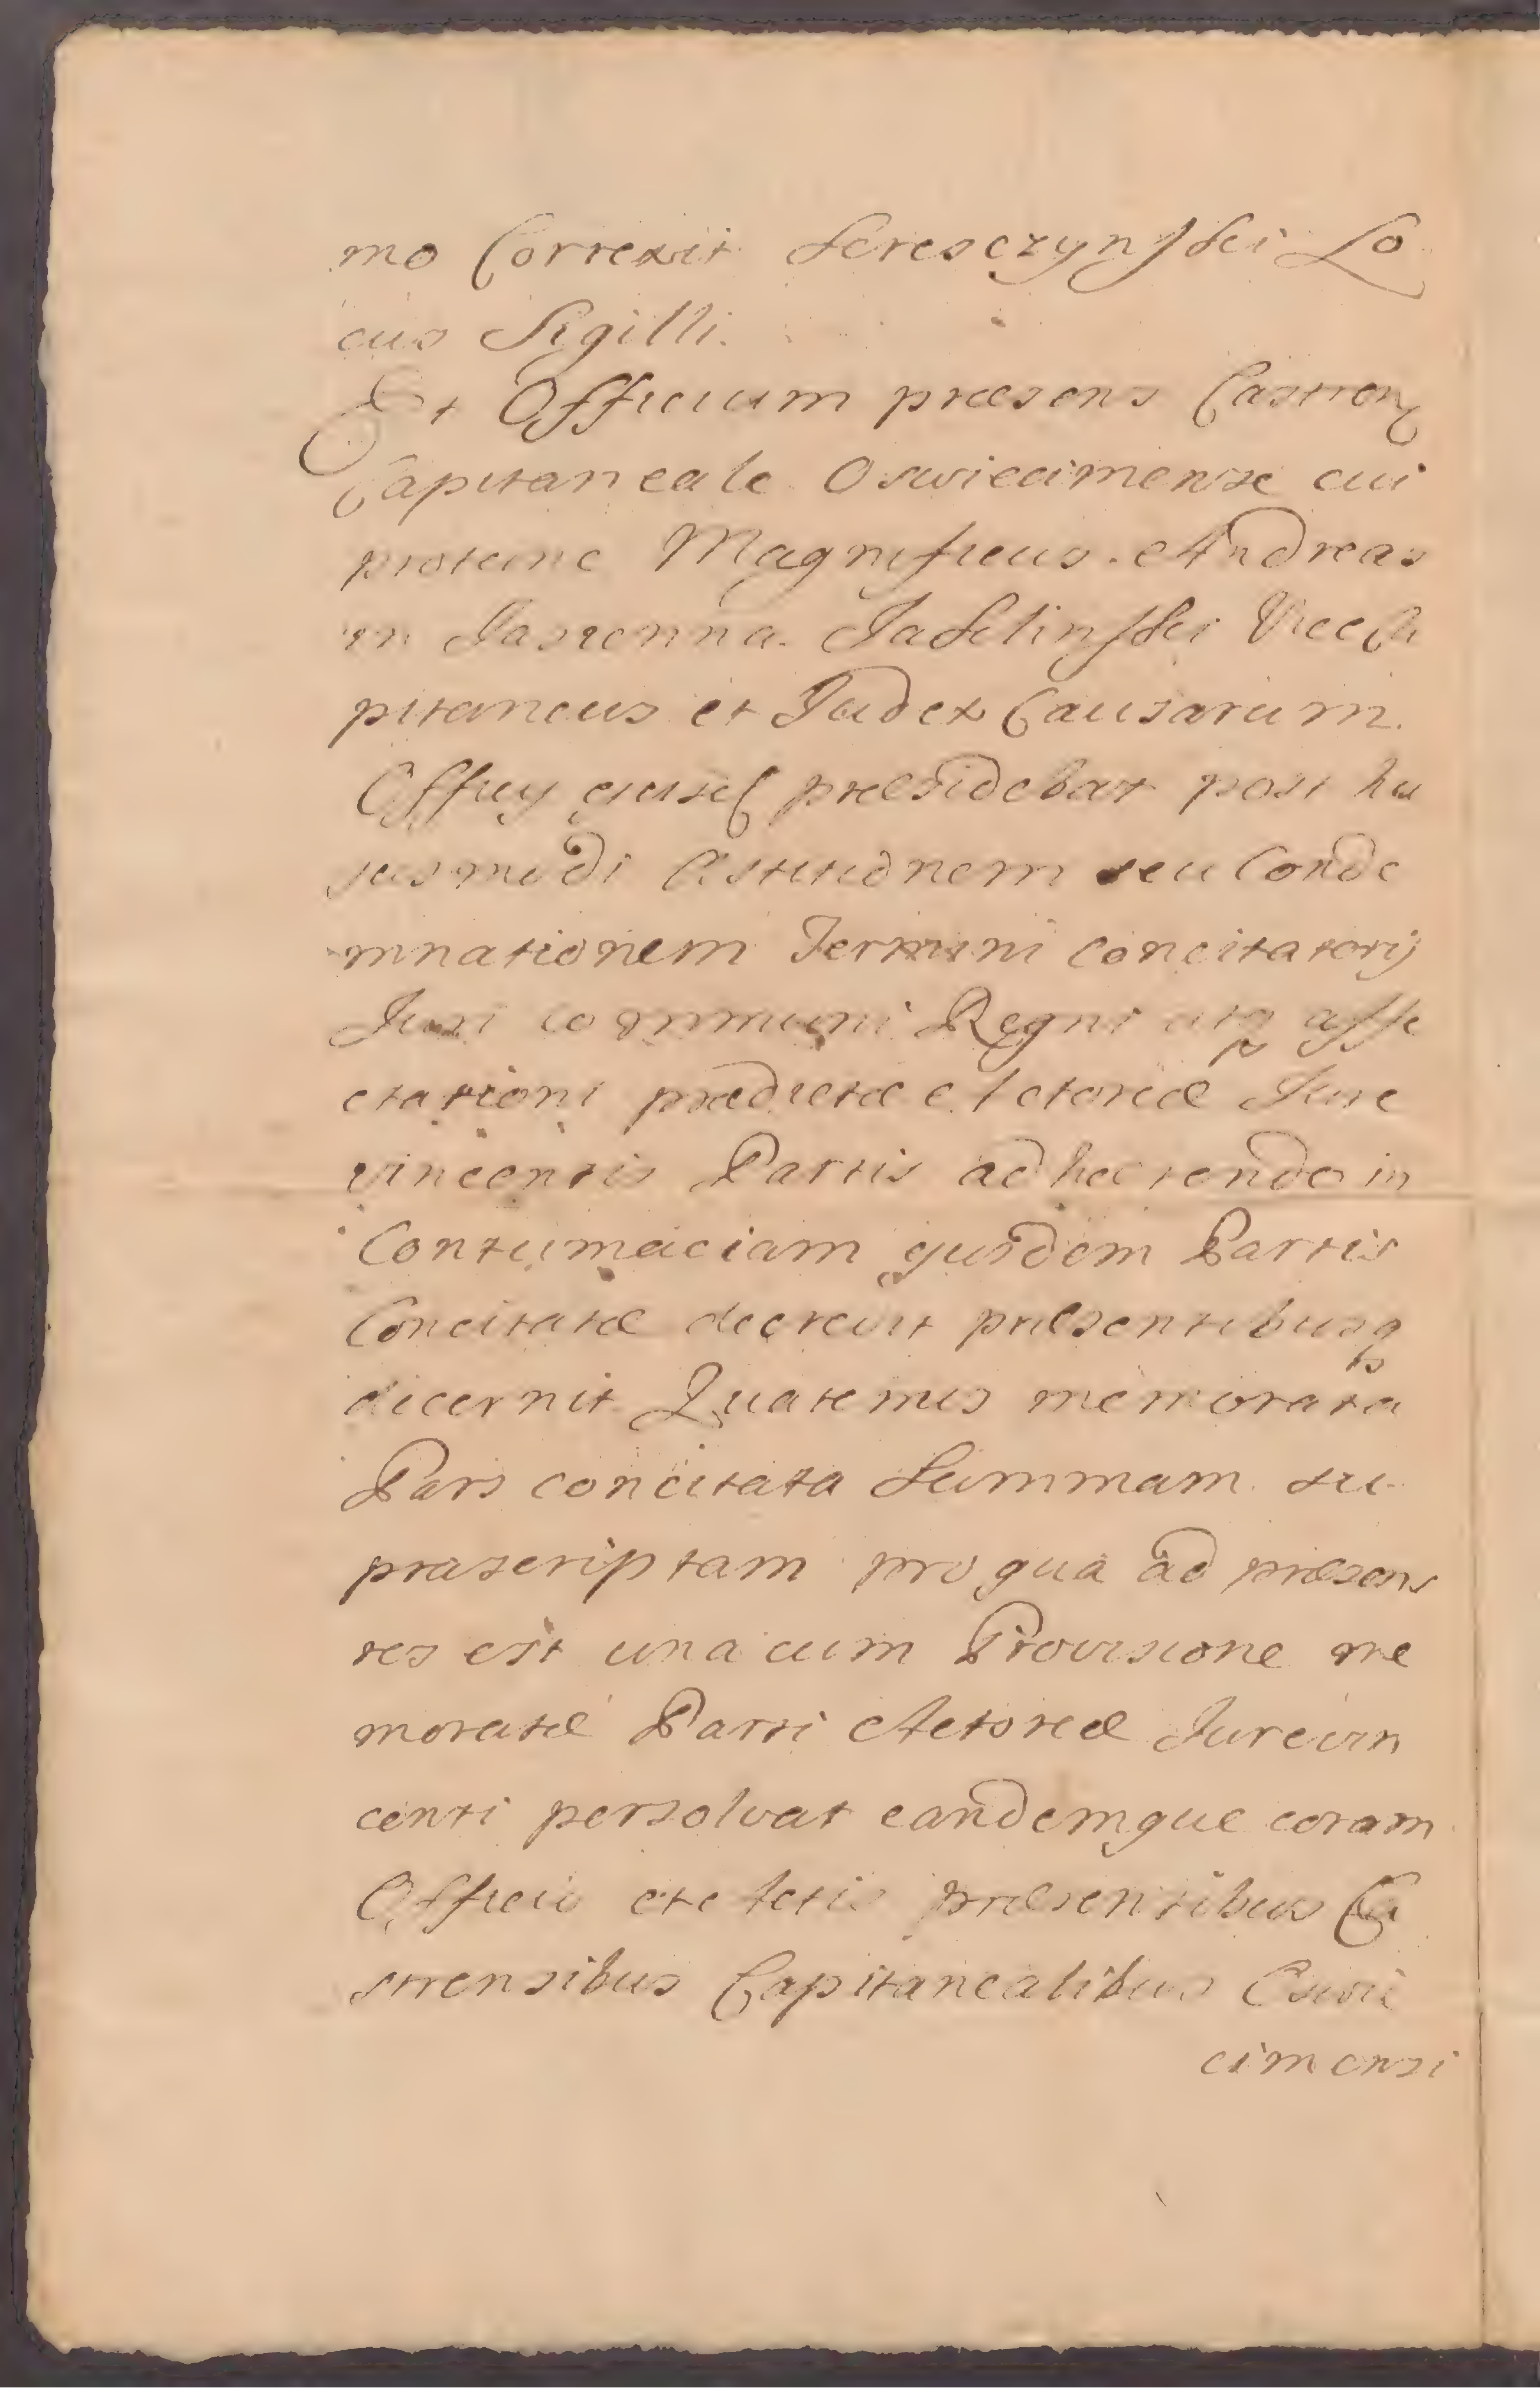 mo Correxit Seresczynski Lo
cus Sigilli.
Et Officium præsens Castren
Capitaneale Oswiecimense cui
protunc Magnificus Andreas
in Jasienna Jaklinski Viceca
pitaneus et Judex Causarum
Officij ejusd præsidebat post hu
jusmodi Astitionem seu Conde
mnationem Termini concitatorij
Juri communi Regni atq affe
ctationi prædictæ Actoreæ Jure
vincentis Partis adhærendo in
Contumaciam ejusdem Partis
Concitatæ decrevit præsentibusq
decernit Quatenus memorata
Pars concitata Summam su
prascriptam pro qua ad præsens
res est una cum Provisione me
moratæ Parti Actoreæ Jurevin
centi persolvat eandemque coram
Officio et Actis præsentibus Ca
strensibus Capitanealibus Oswie
cimensi